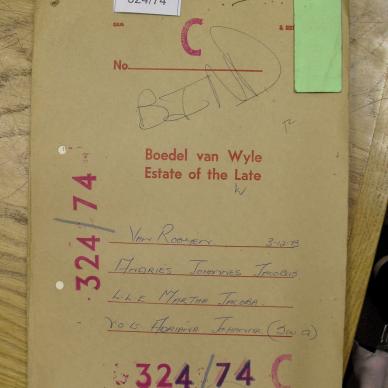 324/74
C
No.
BEND
Boedel van Wyle
Estate of the Late
W
324/74
Van Rooyen 3-12-73
Andries Johannes Jacobus
Martha Jacoba
Adriana Johanna
324/74 C